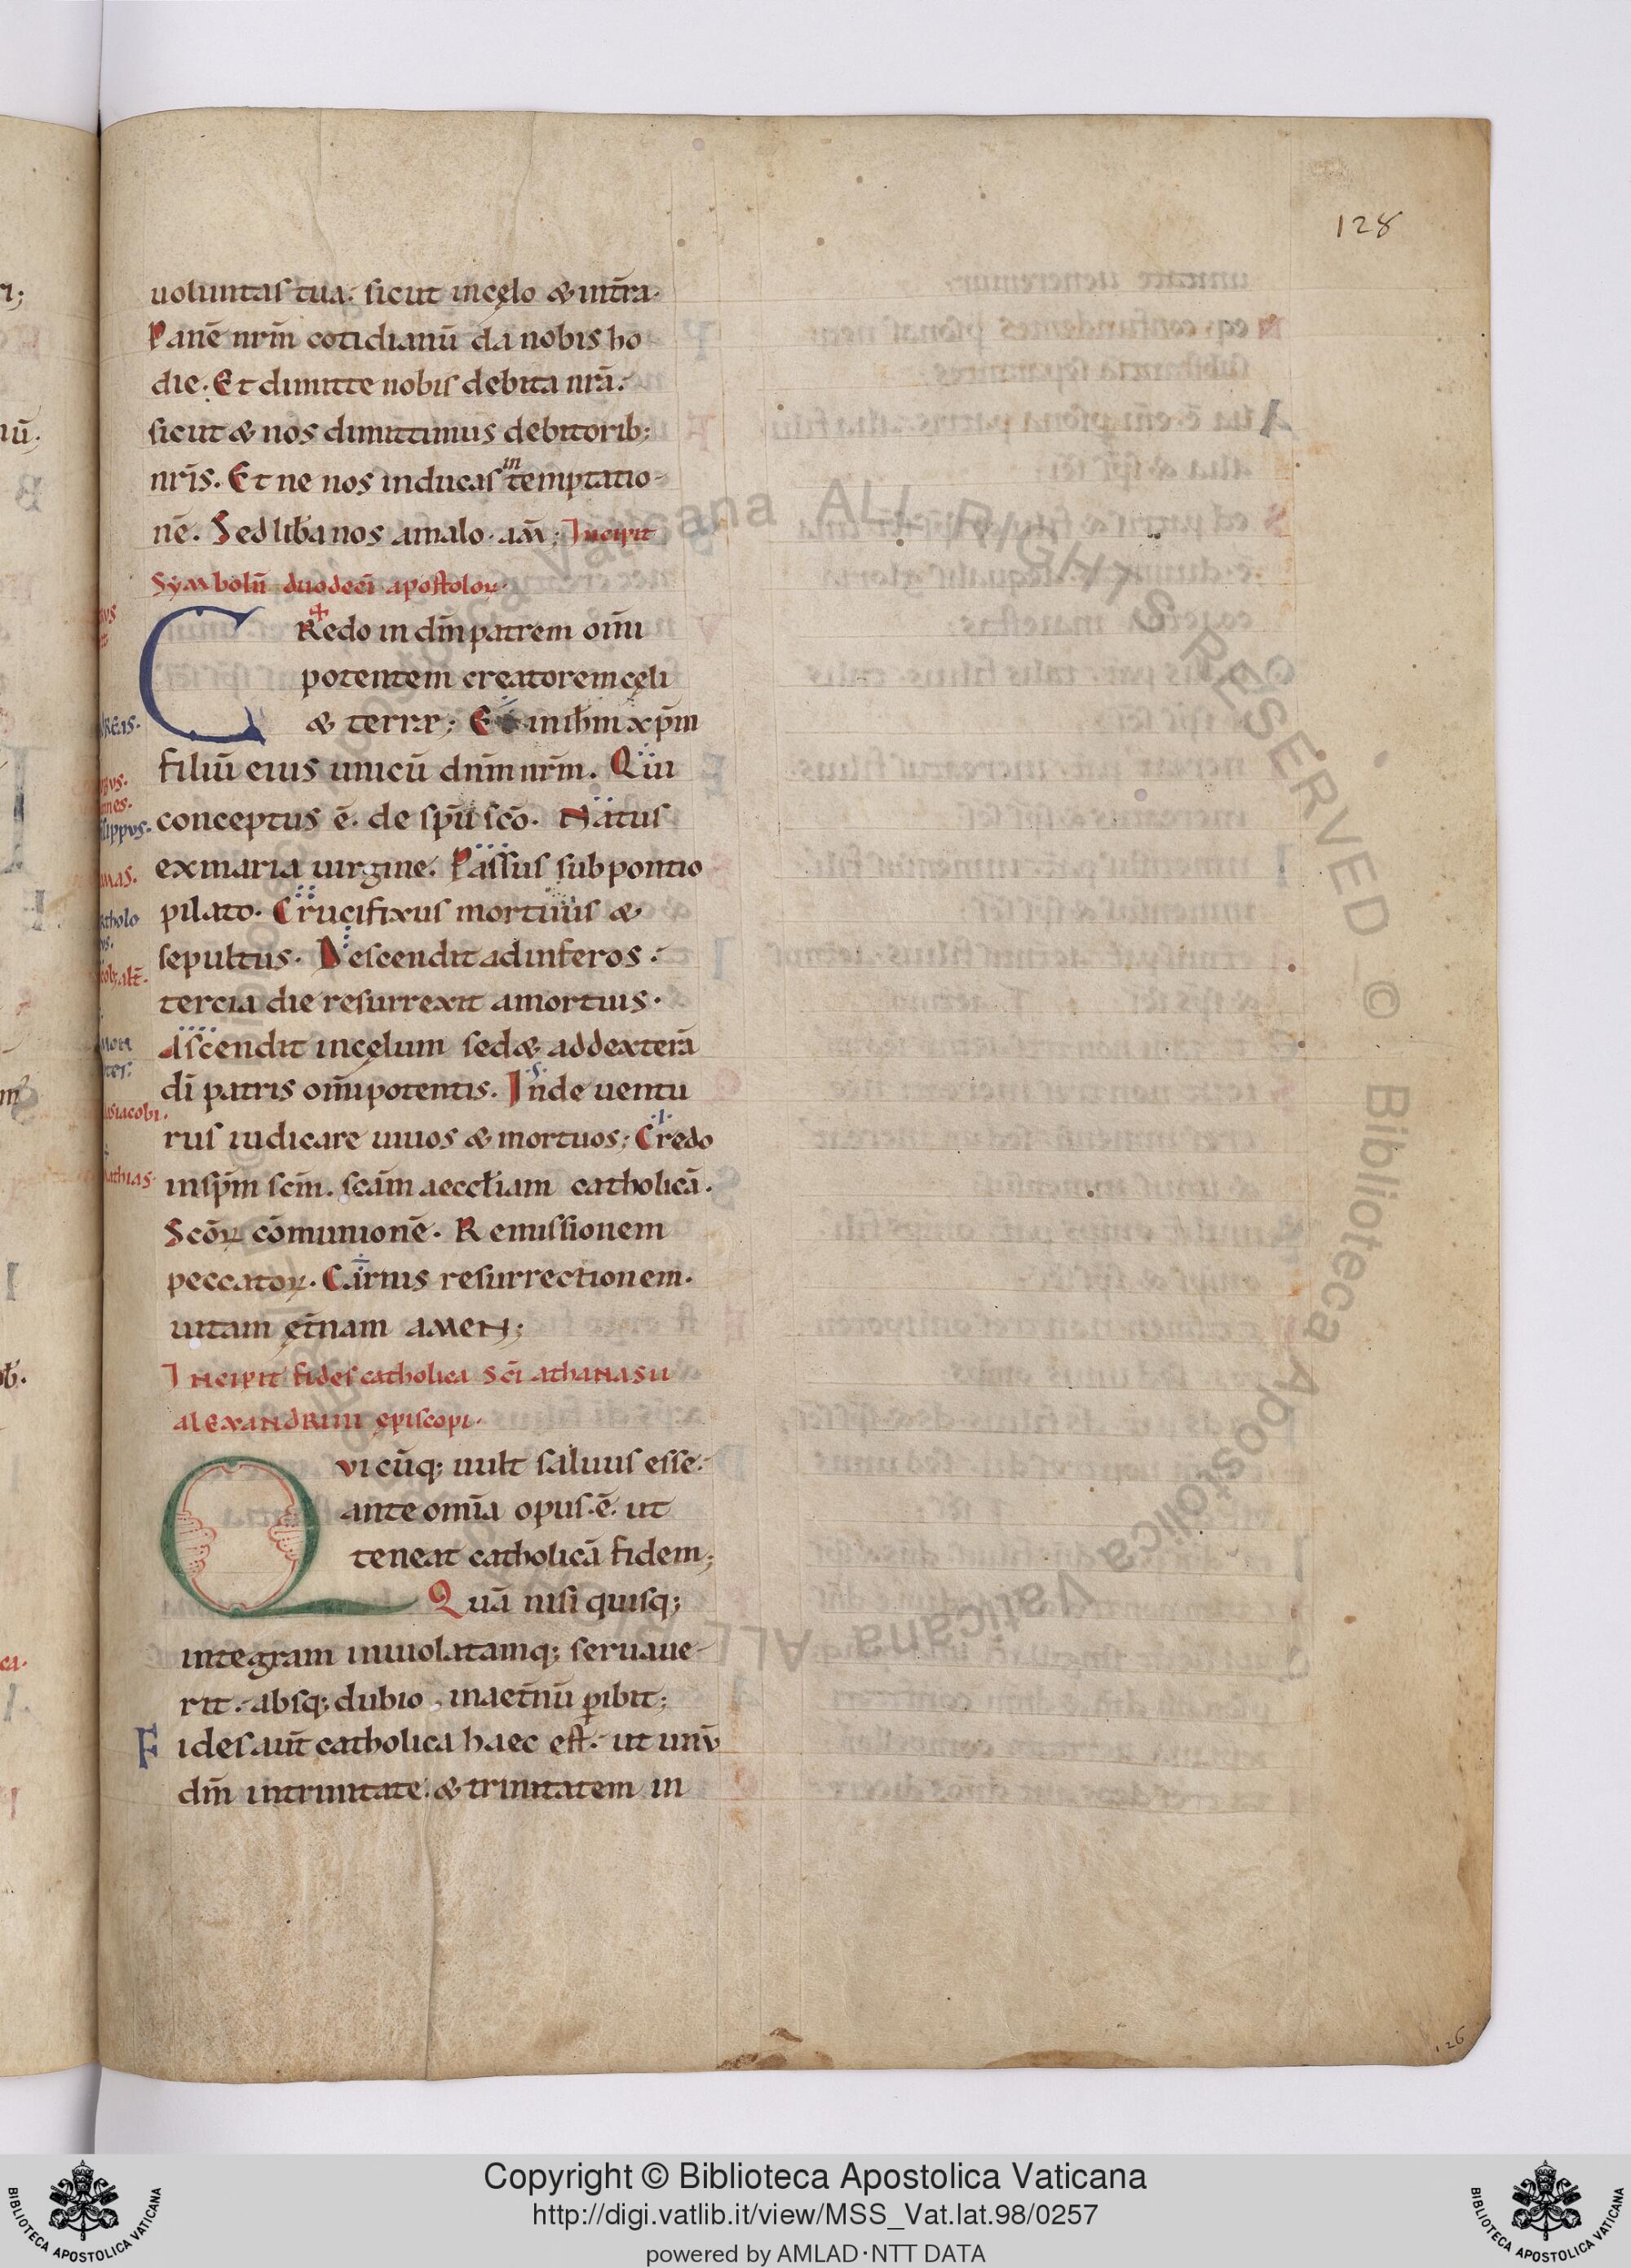 128
uoluntas tua. sicut incęlo & int̄ra.
Panē nrm̄ cotidianū da nobis ho
die. Et dimitte nobis debita nrā.
sicut & nos dimittimus debitorib;
nrīs. Et ne nos inducas in temptatio-
nē. Sed liƀa nos amalo. am̄; Incipit
Symbolū duodecī apostoloꝝ.
CRedo in dm̄ patrem om̄i
potentem creatorem cęli
& terrae; Et in ihm̄ xp̄m
filiū eius unicū dnm̄ nrm̄. Qui
conceptus ē. de spū scō. Natus
exmaria uirgine. Passus sub pontio
pilato. Crucifixus mortuus &
sepultus. Descendit adinferos.
tercia die resurrexit amortuis.
Ascendit incęlum sed& addexterā
dī patris om̄ipotentis. Inde uentu
rus iudicare uiuos & mortuos; Credo
insp̄m scm̄. scām aeccłiam catholicā.
Scōꝝ cōmunionē. Remissionem
peccatoꝝ. Carnis resurrectionem.
uitam ęt̄nam amen;
Incipit fides catholica scī athanasii
alexandrini episcopi.
Qvicūq; uult saluus esse.
ante om̄ia opus. ē. ut
teneat catholicā fidem;
Quā nisi quisq;
integram inuiolatamq; seruaue-
rit. absq; dubio inaet̄nū ꝑibit;
Fides aūt catholica haec est. ut unū
dm̄ intrinitate. & trinitatem in
126
Copyright © Biblioteca Apostolica Vaticana
http://digi.vatlib.it/view/MSS_Vat.lat.98/0257
powered by AMLAD·NTT DATA
BIBLIOTECA APOSTOLICA VATICANA
BIBLIOTECA APOSTOLICA VATICANA